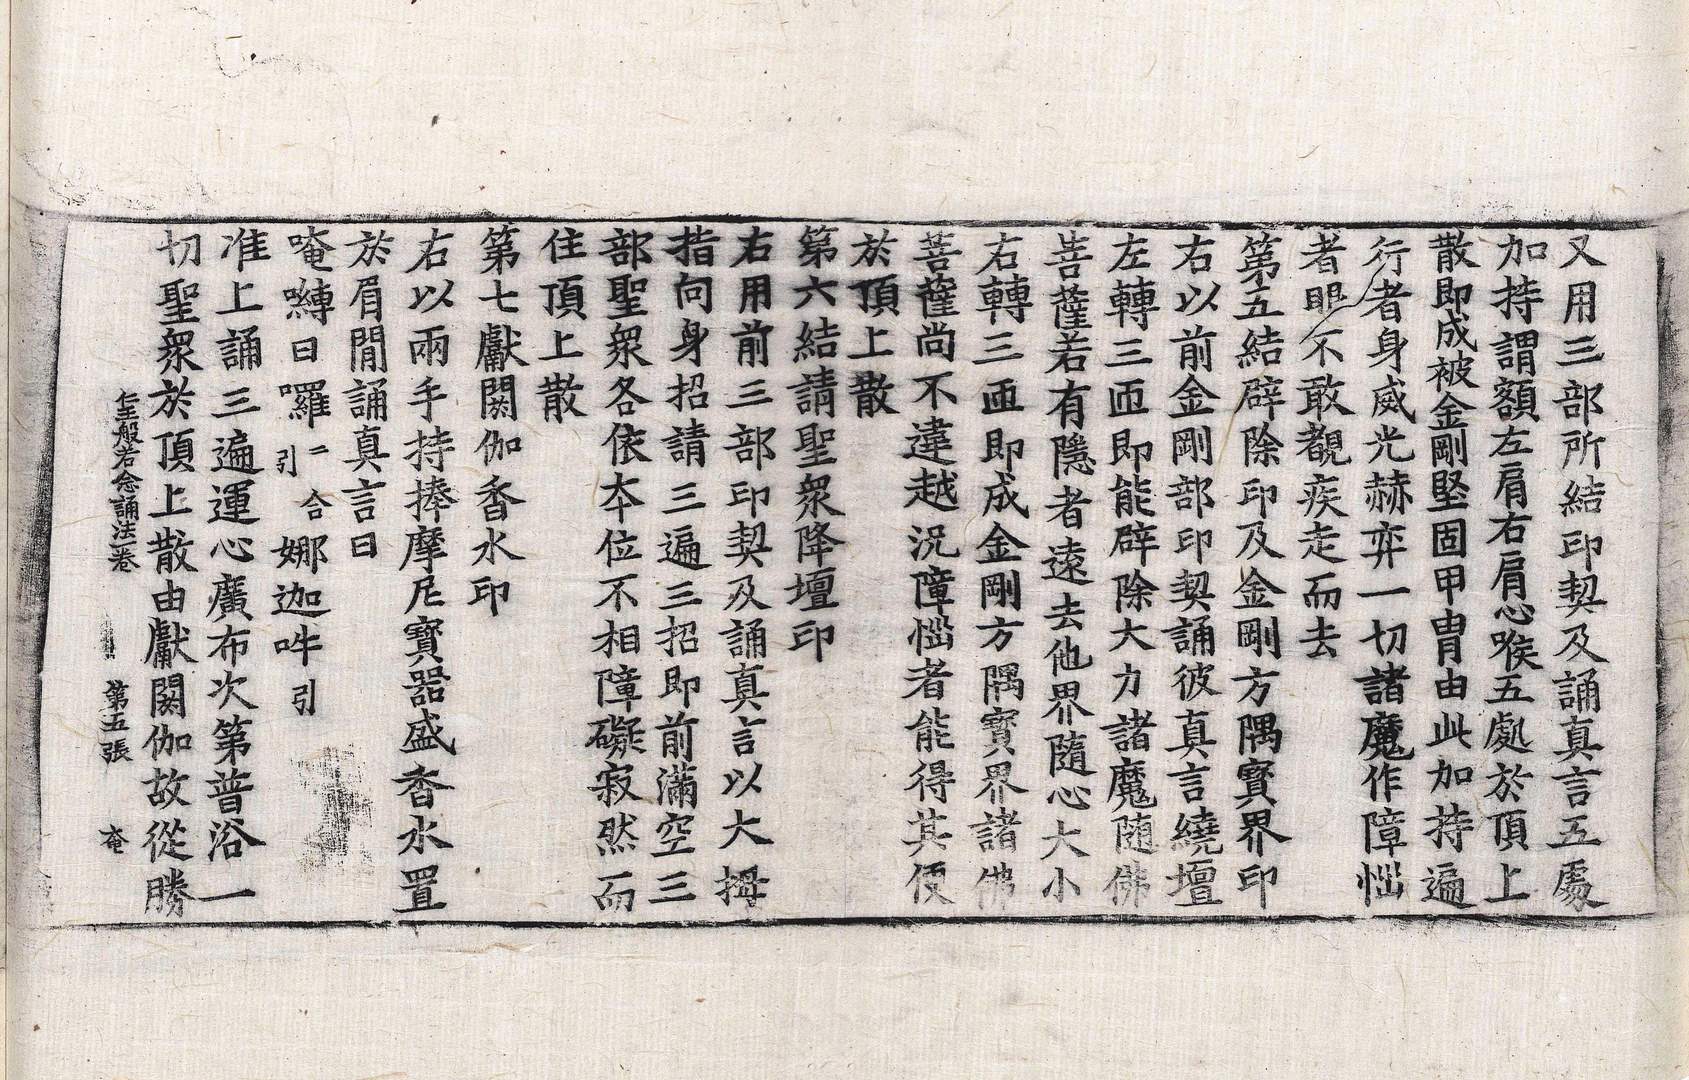 又用三部所結印契及誦真言五處
加持謂額左肩右肩心喉五處於頂上
散即成被金剛堅固甲冑由此加持遍
行者身威光赫弈一切諸魔作障惱
者眼不敢覩疾走而去
第五結辟除印及金剛方隅寳界印
右以前金剛部印契誦彼真言繞壇
左轉三帀即能辟除大力諸魔随佛
菩薩若有隱者遠去他界隨心大小
右轉三帀即成金剛方隅寳界諸佛
菩薩尚不違越況障惱者能得其便
於頂上散
第六結請聖衆降壇印
右用前三部印契及誦真言以大拇
指向身招請三遍三招即前滿空三
部聖衆各依本位不相障礙寂然而
住頂上散
第七獻閼伽香水印
右以兩手持捧摩尼寳器盛香水置
於眉間誦真言曰
唵嚩日囉二合引娜迦吽引
准上誦三遍運心廣布次第普浴一
切聖衆於頂上散由獻閼伽故從勝
仁王般若念誦法一卷 第五張 奄